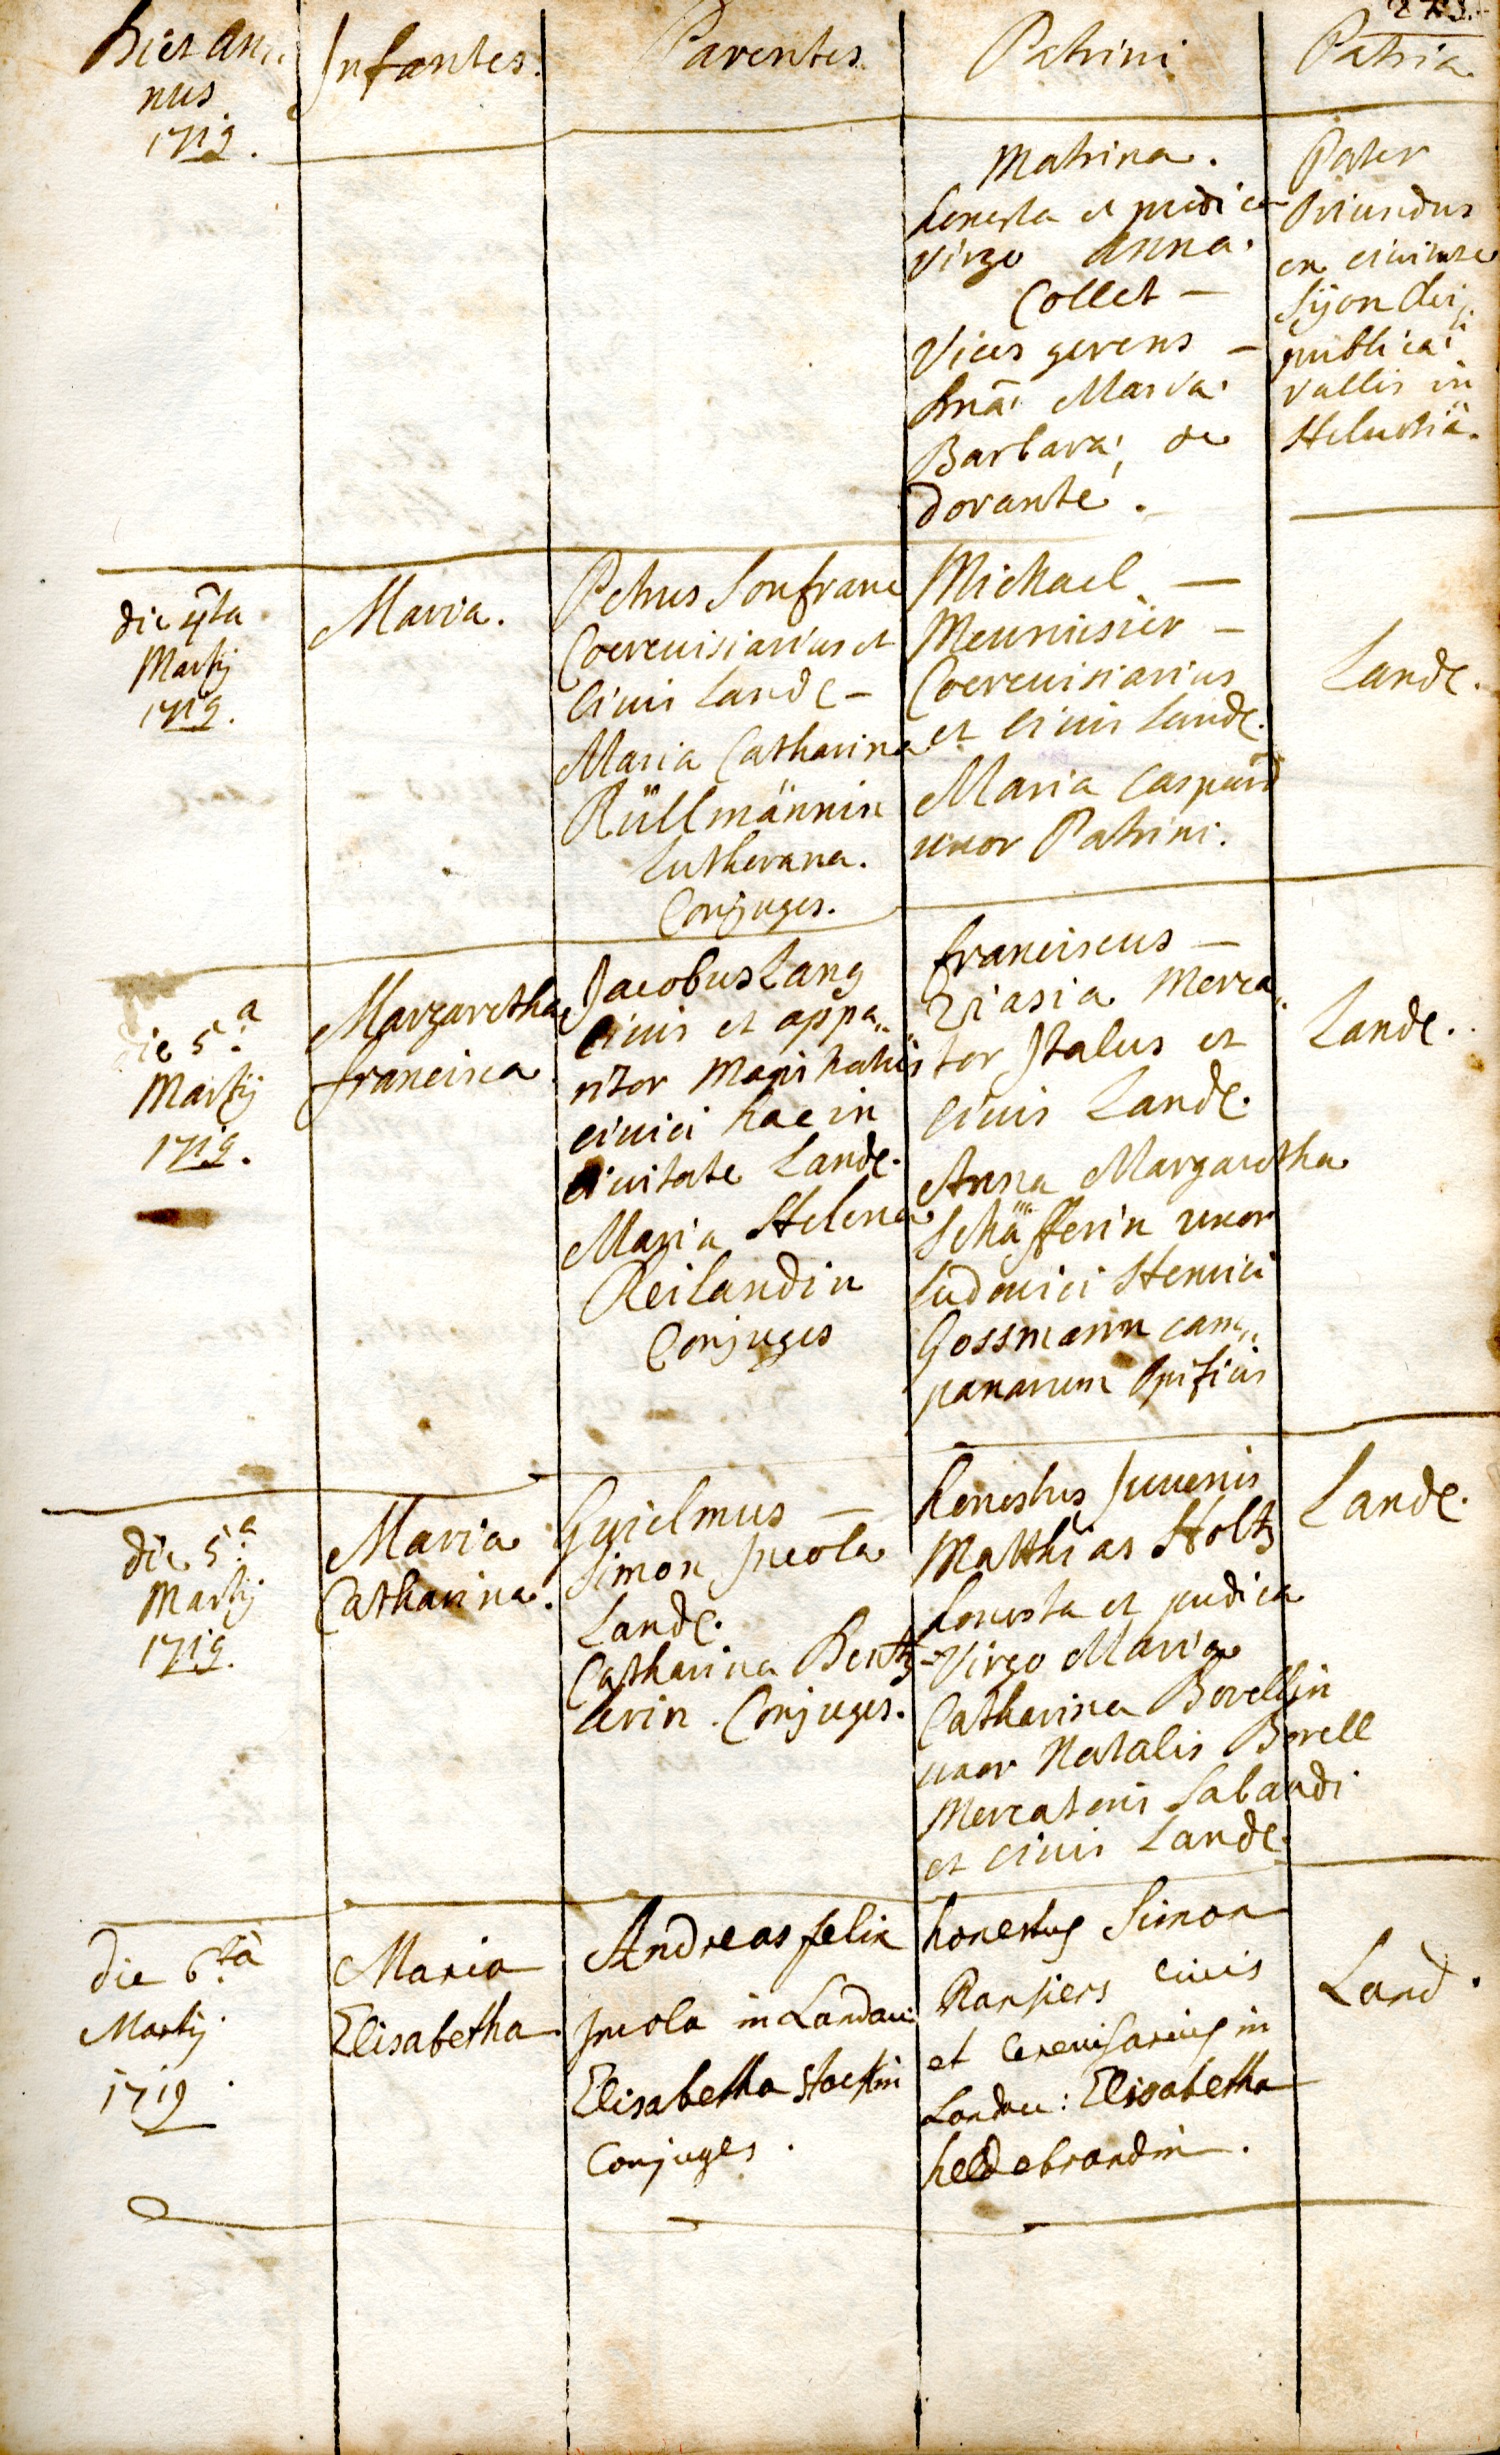 273.
Dies An„
nus
1719.
Infantes.
Parentes
Patrini
Patria
Matrina.
honesta et pudica
virgo Anna
Collet –
Vices gerens –
Maria
Barbara, de
dorante.
Pater
Oriundus
ex civitate
Sijon
publica
vallis in
Helvetia.
die 4ta
Martij
1719.
Maria.
Petrus Sonfranc
Coerevisiarius et
Civis Land: –
Maria Catharina
Rüllmännin
Lutherana.
Conjuges.
Michael –
Meunisier –
Coerevisiarius
et Civis Land:
Maria Caspard
uxor Patrini.
Land:
die 5.a
Martij
1719.
Margaretha
francisca
Jacobus Lang
Civis et appa„
ritor Magistratus
civici hac in
Civitate Land:
Maria Helena
Reilandin
Conjuges
franciscus –
Ziasia Merca„
tor Italus et
Civis Land:
Anna Margaretha
Schäfferin uxor
Ludovici Henrici
Gossmann cam„
panarum Opificis
Land:
die 5.a
Martij
1719.
Maria
Catharina.
Guielmus –
Simon Incola
Land:
Catharina Bentz
lerin. Conjuges.
honestus Juvenis
Matthias Holtz
honesta et pudica
Virgo Maria
Catharina Borellin
uxor Natalis Borell
Mercatoris Sabaudi
et Civis Land:
Land:
die 6.ta
Martij
1719.
Maria
Elisabetha
Andreas felix
Incola in Landau:
Elisabetha Stocklin
Conjuges.
honestus Simon
Ransiers civis
et Cerevisarius in
Landau: Elisabetha
heldebrandin.
Land: